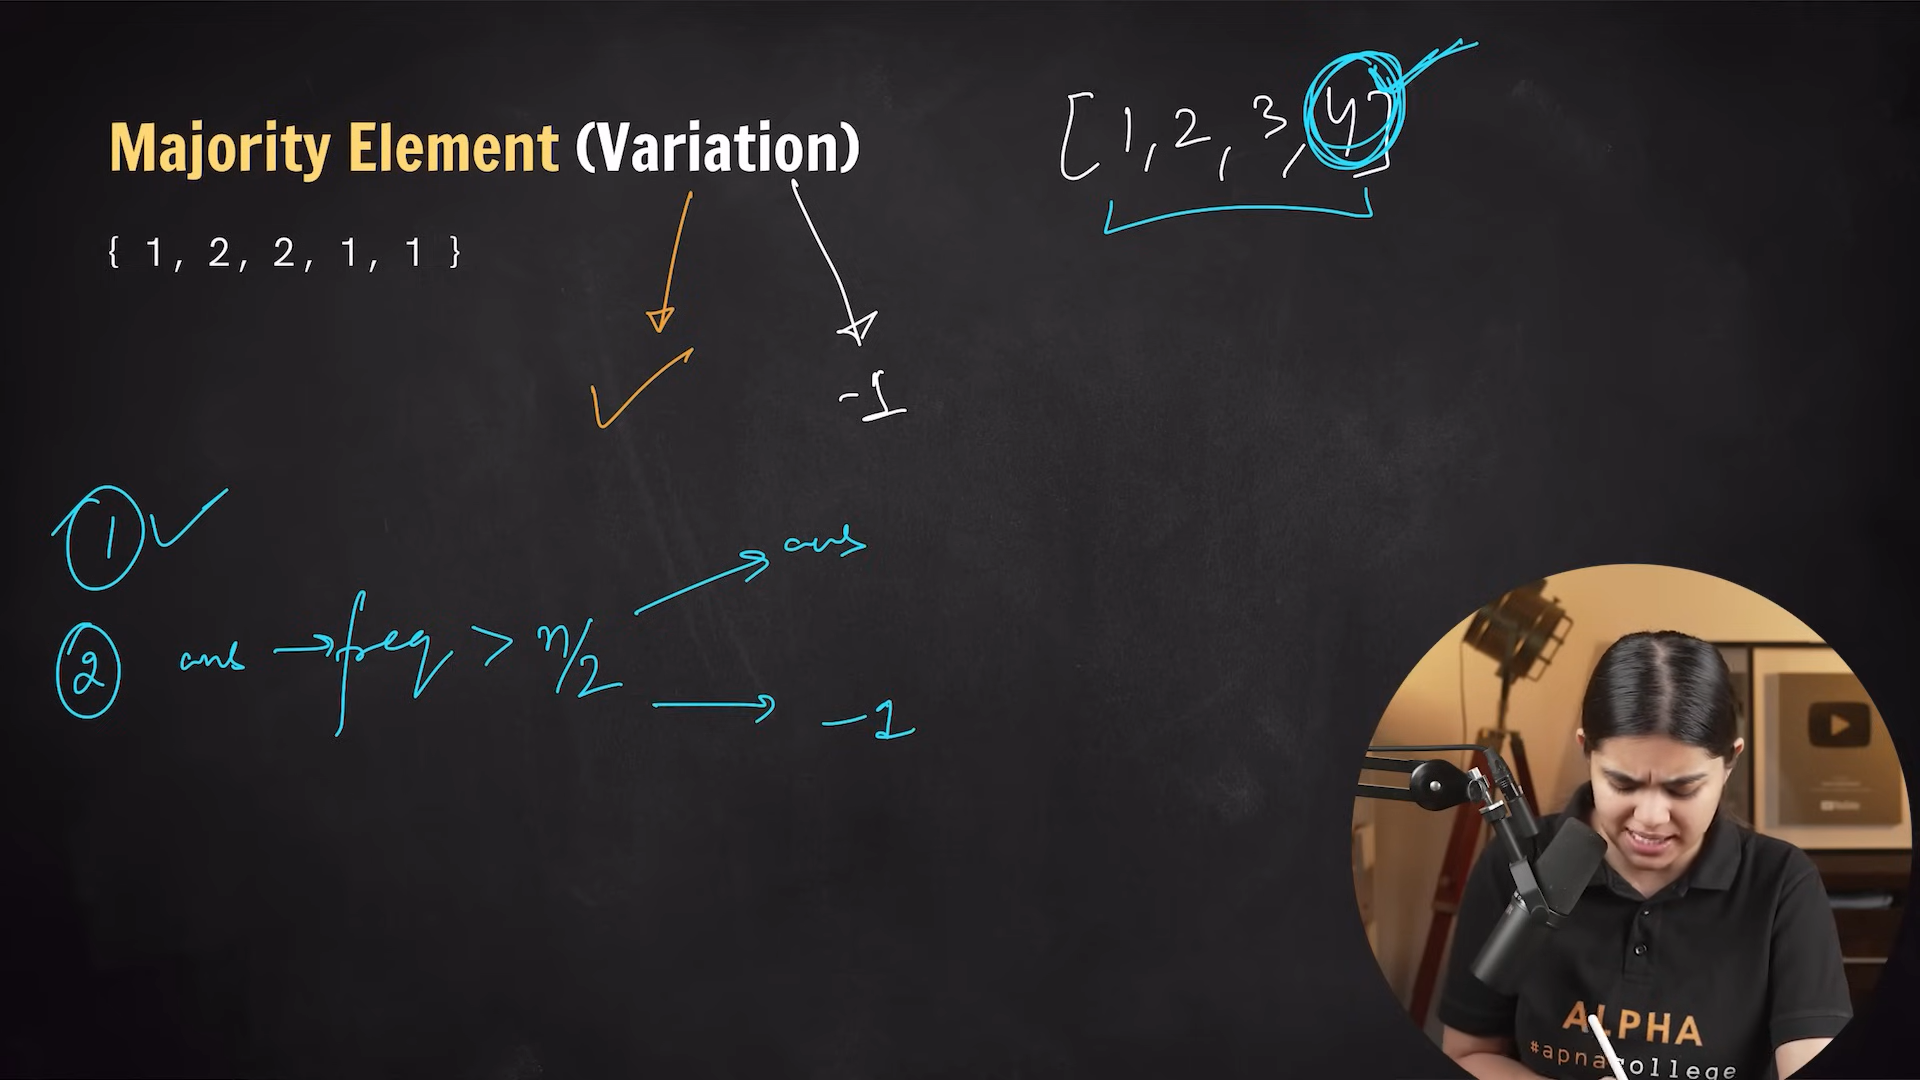 Majority Element (Variation)
[1, 2, 3, 4]
{ 1, 2, 2, 1, 1 }
-1
1
ans
2 ans → freq > n/2
-1
ALPHA
#apnacollege